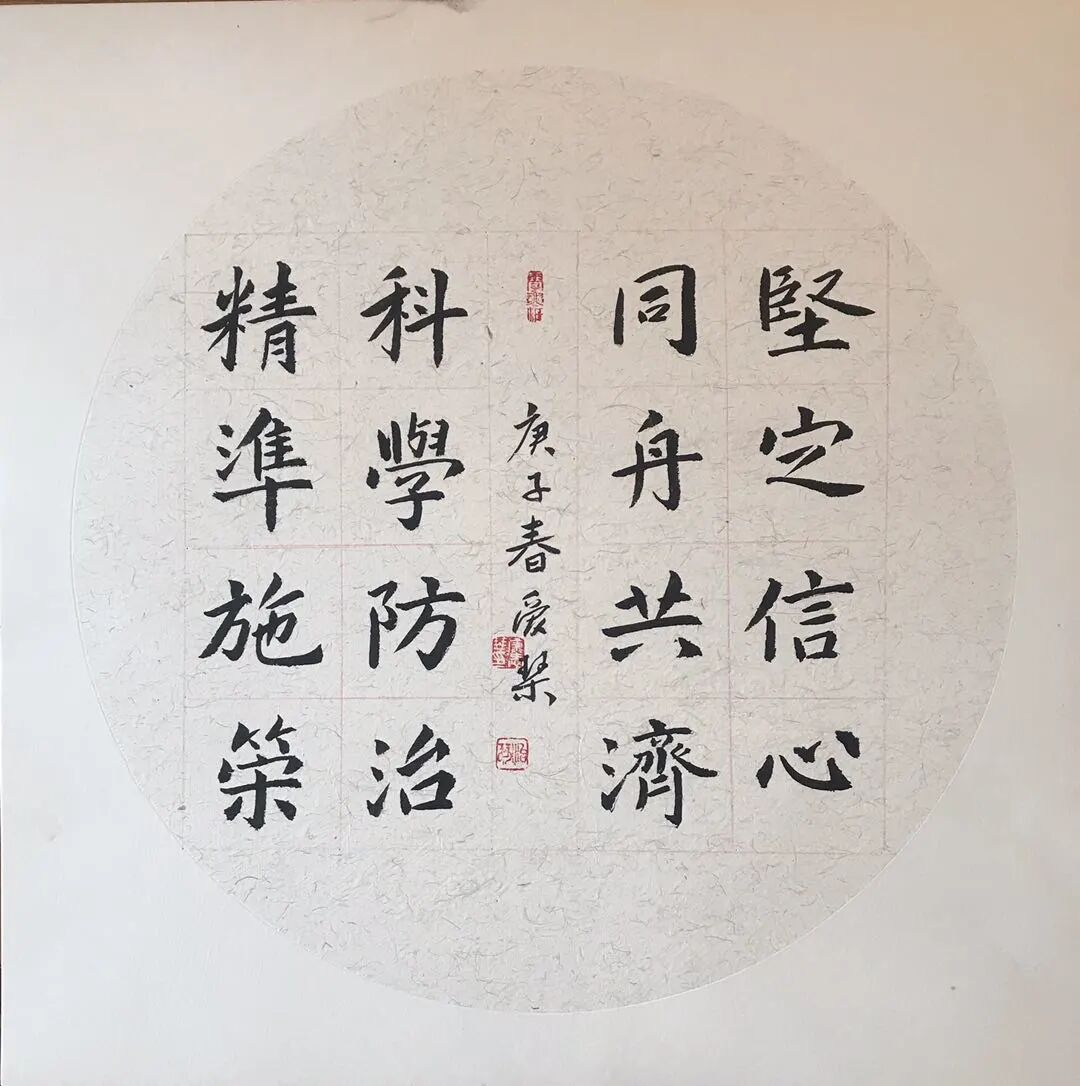 堅定信心
同舟共濟
庚子春爱琹
科學防治
精準施策